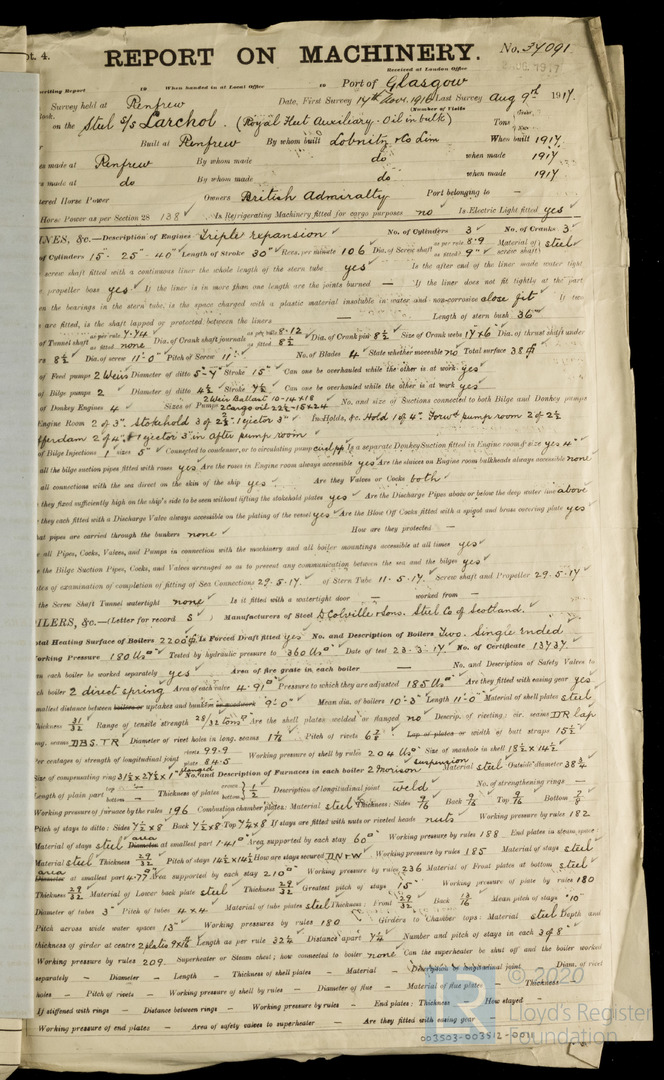 pt. 4.
REPORT ON MACHINERY.
No. 34091
Received at London Office
writing Report 19 When handed in at Local Office 19 Port of Glasgow
Survey held at Renfrew Date, First Survey 14th Nov. 1916 Last Survey Aug 9th 1917.
(Number of Visits
on the Steel S/S Larchol. (Royal Fleet Auxiliary. Oil in bulk) Tons
Built at Renfrew By whom built Lobnitz & Co Lim When built 1917
s made at Renfrew By whom made do when made 1917
s made at do By whom made do when made 1917
tered Horse Power Owners British Admiralty Port belonging to —
Horse Power as per Section 28 138 Is Refrigerating Machinery fitted for cargo purposes no Is Electric Light fitted yes
INES, &c.—Description of Engines Triple expansion No. of Cylinders 3 No. of Cranks 3
of Cylinders 15"- 25"- 40" Length of Stroke 30" Revs. per minute 106 Dia. of Screw shaft as per rule 8.9 as fitted 9" Material of screw shaft steel
screw shaft fitted with a continuous liner the whole length of the stern tube yes Is the after end of the liner made water tight
propeller boss yes If the liner is in more than one length are the joints burned — If the liner does not fit tightly at the part
en the bearings in the stern tube, is the space charged with a plastic material insoluble in water and non-corrosive close fit If two
are fitted, is the shaft lapped or protected between the liners — Length of stern bush 36"
of Tunnel shaft as per rule 7.74 as fitted none Dia. of Crank shaft journals as per rule 8.12 as fitted 8½ Dia. of Crank pin 8½ Size of Crank webs 17x6 Dia. of thrust shaft under
rs 8½ Dia. of screw 11'-0" Pitch of Screw 11'- No. of Blades 4 State whether moveable no Total surface 38
of Feed pumps 2 Weirs Diameter of ditto 5"-7" Stroke 15" Can one be overhauled while the other is at work yes
of Bilge pumps 2 Diameter of ditto 4½ Stroke 7½ Can one be overhauled while the other is at work yes
of Donkey Engines 4 Sizes of Pumps 2 Weir Ballast 10-14x18 2 Cargo oil 22½-15x24 No. and size of Suctions connected to both Bilge and Donkey pumps
Engine Room 2 of 3". Stokehold 3 of 2½". 1 ejector 3" In Holds, &c. Hold 1 of 4". Forwd pump room 2 of 2½
fferdam 2 of 4" & 1 ejector 3" in After pump room
of Bilge Injections 1 sizes 5" Connected to condenser, or to circulating pump circ pp Is a separate Donkey Suction fitted in Engine room & size yes 4"
all the bilge suction pipes fitted with roses yes Are the roses in Engine room always accessible yes Are the sluices on Engine room bulkheads always accessible none
all connections with the sea direct on the skin of the ship yes Are they Valves or Cocks both
they fixed sufficiently high on the ship's side to be seen without lifting the stokehold plates yes Are the Discharge Pipes above or below the deep water line above
they each fitted with a Discharge Valve always accessible on the plating of the vessel yes Are the Blow Off Cocks fitted with a spigot and brass covering plate yes
hat pipes are carried through the bunkers none How are they protected —
all Pipes, Cocks, Valves, and Pumps in connection with the machinery and all boiler mountings accessible at all times yes
the Bilge Suction Pipes, Cocks, and Valves arranged so as to prevent any communication between the sea and the bilges yes
ates of examination of completion of fitting of Sea Connections 29.5.17 of Stern Tube 11.5.17 Screw shaft and Propeller 29.5.17
the Screw Shaft Tunnel watertight none Is it fitted with a watertight door worked from —
OILERS, &c.—(Letter for record S ) Manufacturers of Steel D Colville & Sons. Steel Co of Scotland.
otal Heating Surface of Boilers 2200 Is Forced Draft fitted yes No. and Description of Boilers Two. Single ended
Working Pressure 180 lbs Tested by hydraulic pressure to 360 lbs Date of test 23.3.17 No. of Certificate 13737
an each boiler be worked separately yes Area of fire grate in each boiler — No. and Description of Safety Valves to
ch boiler 2 direct spring Area of each valve 4.91 Pressure to which they are adjusted 185 lbs Are they fitted with easing gear yes
mallest distance between boilers or uptakes and bunkers or woodwork 9'-0" Mean dia. of boilers 10'-3" Length 11'-0" Material of shell plates steel
Thickness 31/32 Range of tensile strength 28/32 tons Are the shell plates welded or flanged no Descrip. of riveting: cir. seams DR lap
ong. seams DBS. TR Diameter of rivet holes in long. seams 1 1/16 Pitch of rivets 6 7/8 Lap of plates or width of butt straps 15½
Per centages of strength of longitudinal joint rivets 99.9 plate 84.5 Working pressure of shell by rules 204 lbs Size of manhole in shell 18½ x 14½
Size of compensating ring 31½ x 27½ x 1" flanged No. and Description of Furnaces in each boiler 2 Morison suspension Material steel Outside diameter 38¾
Length of plain part top bottom — Thickness of plates crown bottom ½ Description of longitudinal joint weld No. of strengthening rings —
Working pressure of furnace by the rules 196 Combustion chamber plates: Material steel Thickness: Sides 9/16 Back 9/16 Top 9/16 Bottom 7/8
Pitch of stays to ditto: Sides 7½ x 8 Back 7½ x 8 Top 7¼ x 8 If stays are fitted with nuts or riveted heads nuts Working pressure by rules 182
Material of stays steel area Diameter at smallest part 1.41 Area supported by each stay 60 Working pressure by rules 188 End plates in steam space
Material steel Thickness 29/32 Pitch of stays 14½ x 14½ How are stays secured DN&W Working pressure by rules 185 Material of stays steel
area Diameter at smallest part 4.77 Area supported by each stay 210 Working pressure by rules 236 Material of Front plates at bottom steel
Thickness 29/32 Material of Lower back plate steel Thickness 29/32 Greatest pitch of stays 15" Working pressure of plate by rules 180
Diameter of tubes 3" Pitch of tubes 4 x 4 Material of tube plates steel Thickness: Front 29/32 Back 13/16 Mean pitch of stays 10"
Pitch across wide water spaces 13" Working pressures by rules 180 Girders to Chamber tops: Material steel Depth and
thickness of girder at centre 2 plates 9 x Length as per rule 32¼ Distance apart 7¼ Number and pitch of stays in each 3 of 8"
Working pressure by rules 209. Superheater or Steam chest; how connected to boiler none Can the superheater be shut off and the boiler worked
separately — Diameter — Length — Thickness of shell plates — Material — Description of longitudinal joint Diam. of rivet
holes — Pitch of rivets — Working pressure of shell by rules — Diameter of flue — Material of flue plates Thickness
If stiffened with rings — Distance between rings — Working pressure by rules — End plates: Thickness How stayed —
Working pressure of end plates — Area of safety valves to superheater — Are they fitted with easing gear
LR © 2020
Lloyd's Register
Foundation
003503-003512-0011